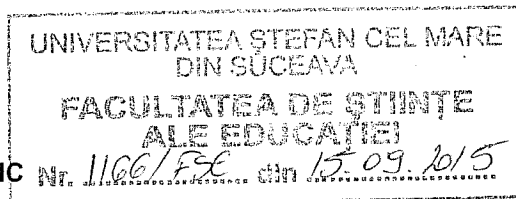 UNIVERSITATEA ŞTEFAN CEL MARE
DIN SUCEAVA
FACULTATEA DE ŞTIINŢE
ALE EDUCAŢIEI
IC Nr. 1166/FSE din 15.09.2015